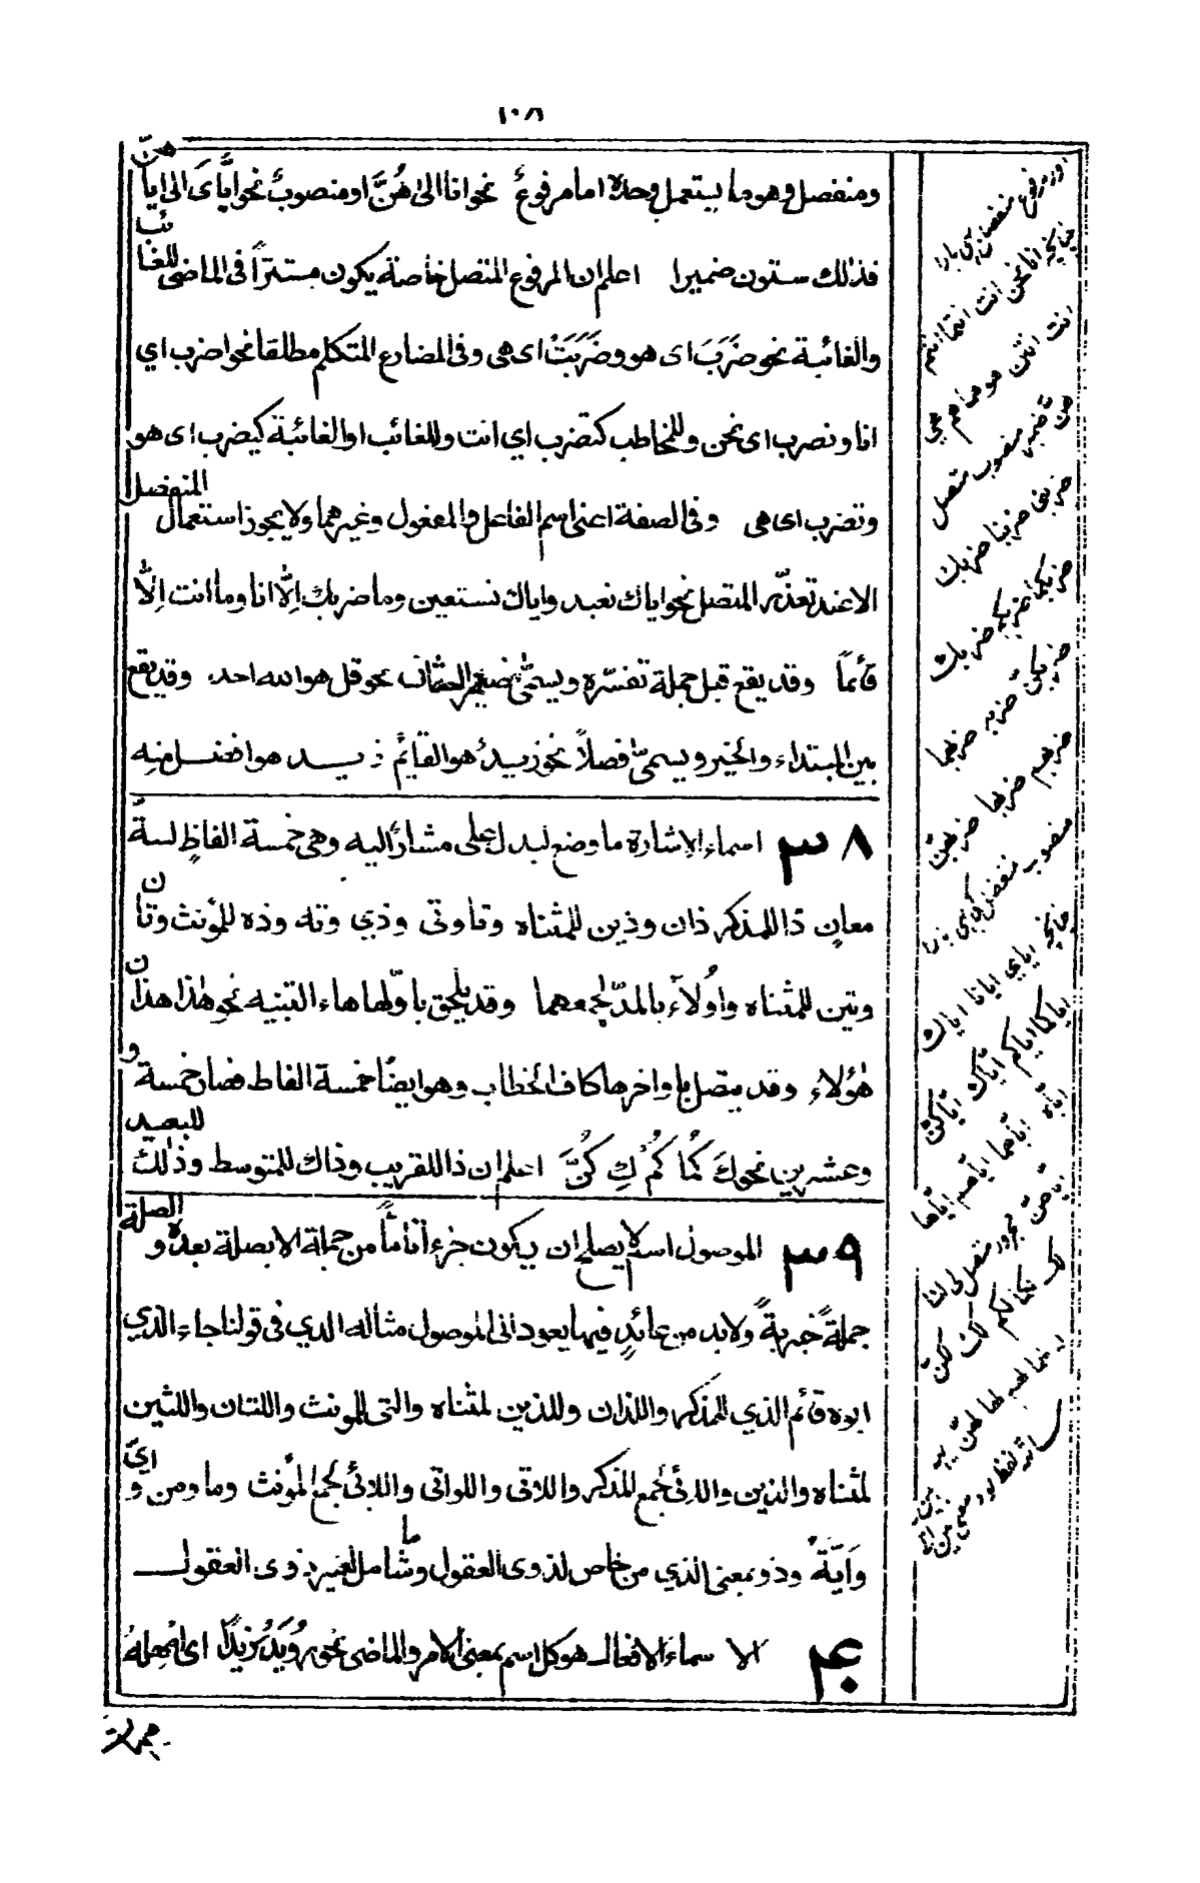 ١٠٨
ومنفصل وهو ما يستعمل وحده اما مرفوعٌ نحو انا الىٰ هُنَّ او منصوبٌ نحو ايَّاىَ الى اياهنّ
فذٰلك ستون ضميرا اعلم ان المرفوع المتصل خاصة يكون مستتراً فى الماضى للغائب
والغائبة نحو ضَرَبَ اى هو وضَرَبَتْ اى هى وفى المضارع المتكلم مطلقا نحو اضرب اي
انا ونضرب اى نحن وللمخاطب كتضرب اي انت وللغائب او الغائبة كيضرب اى هو
وتضرب اى هى وفى الصفة اعنى اسم الفاعل والمفعول وغيرهما ولا يجوز استعمال المنفصل
الا عند تعذّر المتصل نحو اياك نعبد واياك نستعين وما ضربك اِلّا انا وما انت اِلّا
قائماً وقد يقع قبل جملة تفسّره ويسمّى ضمير الشان نحو قل هو الله احد، وقد يقع
بين المبتداء والخبر ويسمىّ فصلاً نحو زيدٌ هو القايمٌ زيد هو افضل منه
٣٨ اسماء الاشارة ما وضع ليدل على مشارٌ اليه وهى خمسة الفاظٍ لستّة
معانٍ ذا للمذكر ذان وذين للمثناه وتا وتى وذي وته وذه للمؤنث وتان
وتين للمثناه واُولآء بالمدّ لجمعهما وقد يلحق باوّلها هاء التنبيه نحو هٰذا هذان
هٰؤلاء وقد يتصل باواخرها كاف الخطاب وهو ايضًا خمسة الفاط فصار خمسة و
وعشرين نحو كَ كُمَا كُمْ كِ كُنَّ اعلم ان ذا للقريب وذاك للمتوسط وذٰلك للبعيد
٣٩ الموصول اسم لا يصلح ان يكون جزء اتاماً من جملة الا بصلة بعده و الصلة
جملةً خبريةً ولا بد من عائدٍ فيها يعود الى الموصول مثاله الدي فى قولنا جاء الذي
ابوه قائم الذي للمذكر واللذان وللذين لمثناه والتى للمونث واللتان واللتين
لمثناه والذين واللائى لجمع المذكر واللاتى واللواتى واللائى لجمع المؤنث وما ومن و ايّ
وَايَّةٌ وذو بمعنى الذي من خاص لذوى العقول وما شامل لغير ذوى العقول
۴۰ الا سماء الافعال هو كل اسم بمعنى الامر والماضى نحو رُوَيْدَ زيدًا اى امْهِلهُ
انت انتن هو هما هم هى
منصوب متصل
ضربنى ضربنا ضربك
ضربكما ضربكم ضربك
ضربكن ضربه ضربهما
ضربهم ضربها ضربهنّ
چنانچه اياي ايانا اياك
اياكما اياكم اياك اياكنّ
اياه اياهما اياهم اياها
اياهنّ مجرور متصل لى لنا
لك لكما لكم لك لكنّ